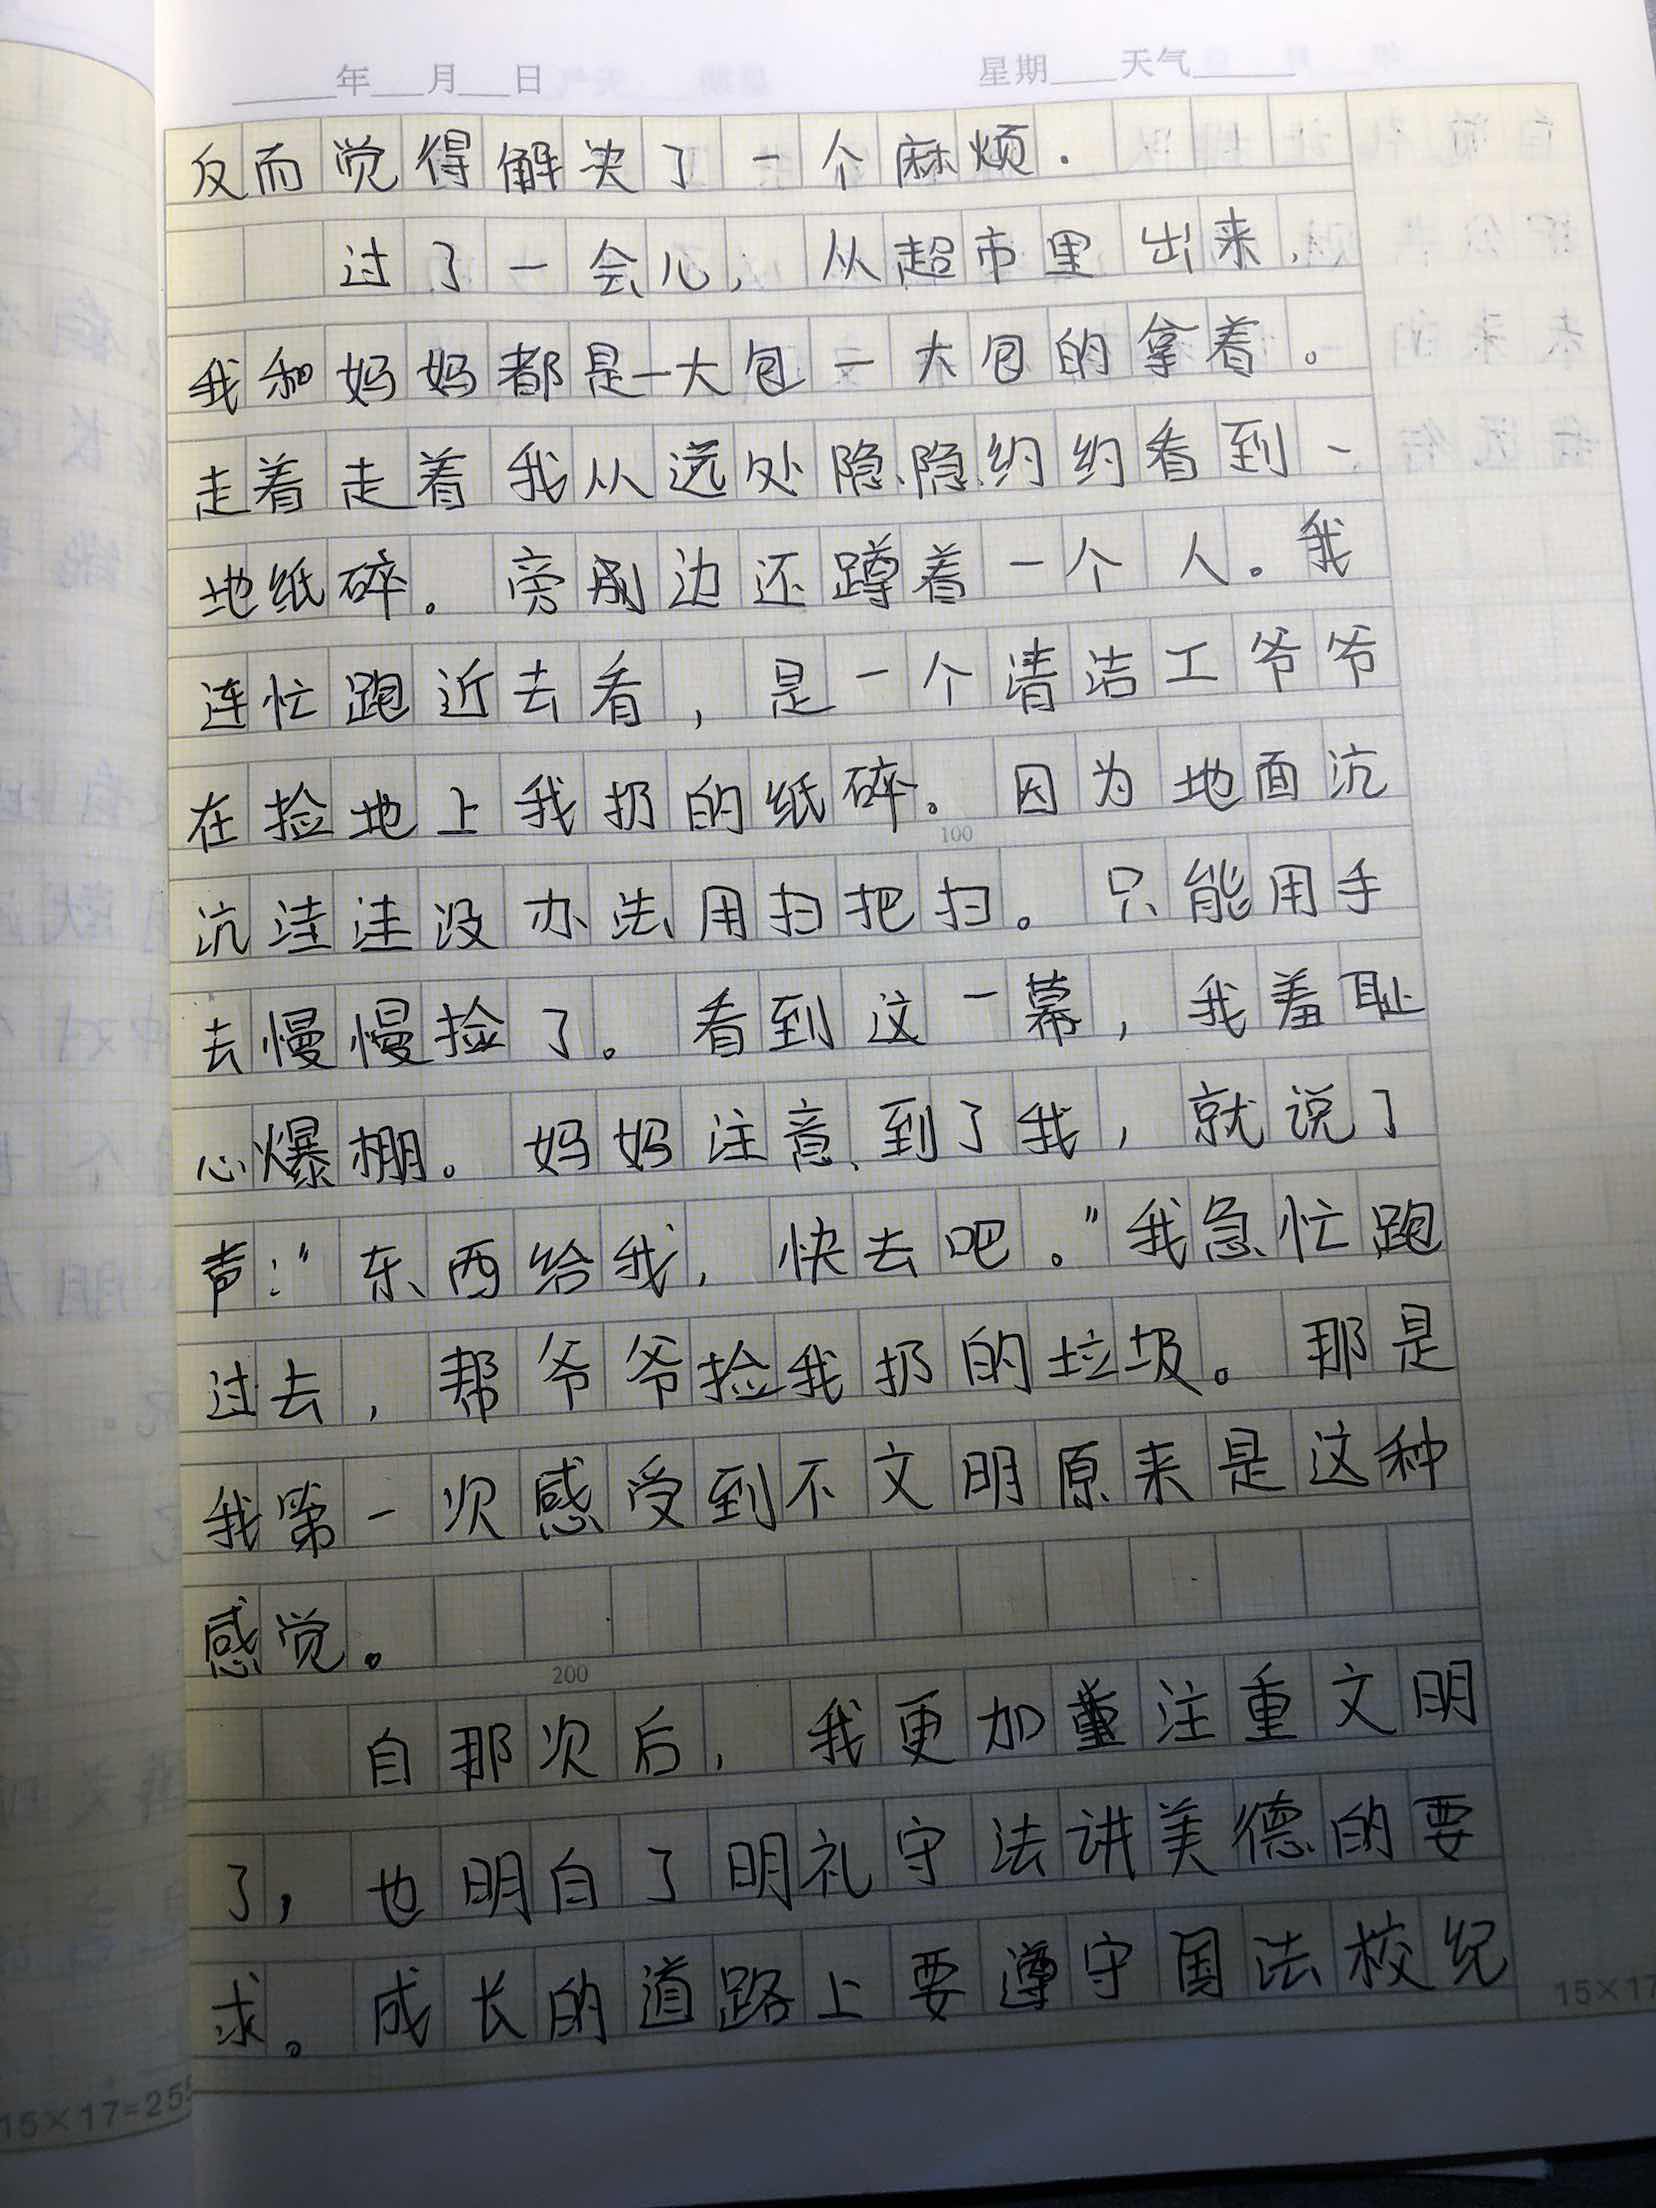 年 月 日 星期 天气
反而觉得解决了一个麻烦.
过了一会儿，从超市里出来，
我和妈妈都是一大包一大包的拿着。
走着走着我从远处隐隐约约看到一
地纸碎。旁边还蹲着一个人。我
连忙跑近去看，是一个清洁工爷爷
在捡地上我扔的纸碎。因为地面沆
100
沆洼洼没办法用扫把扫。只能用手
去慢慢捡了。看到这一幕，我羞耻
心爆棚。妈妈注意到了我，就说了
声："东西给我，快去吧。"我急忙跑
过去，帮爷爷捡我扔的垃圾。那是
我第一次感受到不文明原来是这种
感觉。
200
自那次后，我更加注重文明
了，也明白了明礼守法讲美德的要
求。成长的道路上要遵守国法校纪
15×17
15×17=255